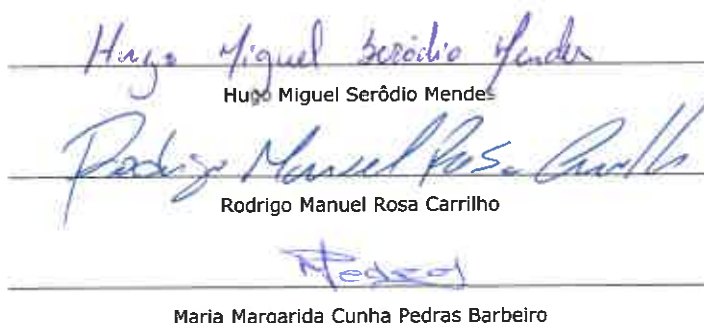 Hugo Miguel Seródio Mendes
Hugo Miguel Serôdio Mendes
Rodrigo Manuel Rosa Carrilho
Rodrigo Manuel Rosa Carrilho
Pedras
Maria Margarida Cunha Pedras Barbeiro